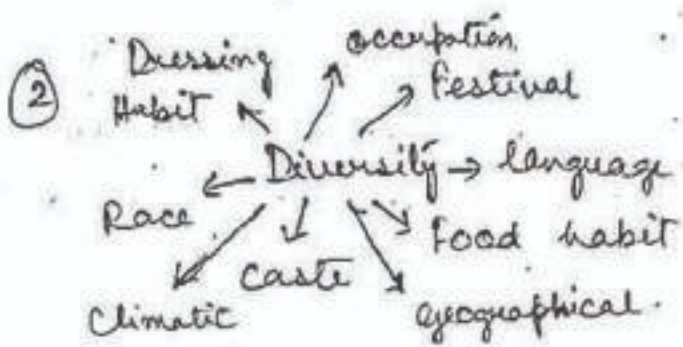 ②
Dressing
Habit
occupation
Festival
Diversity → language
Race
Food habit
Caste
Climatic
geographical.